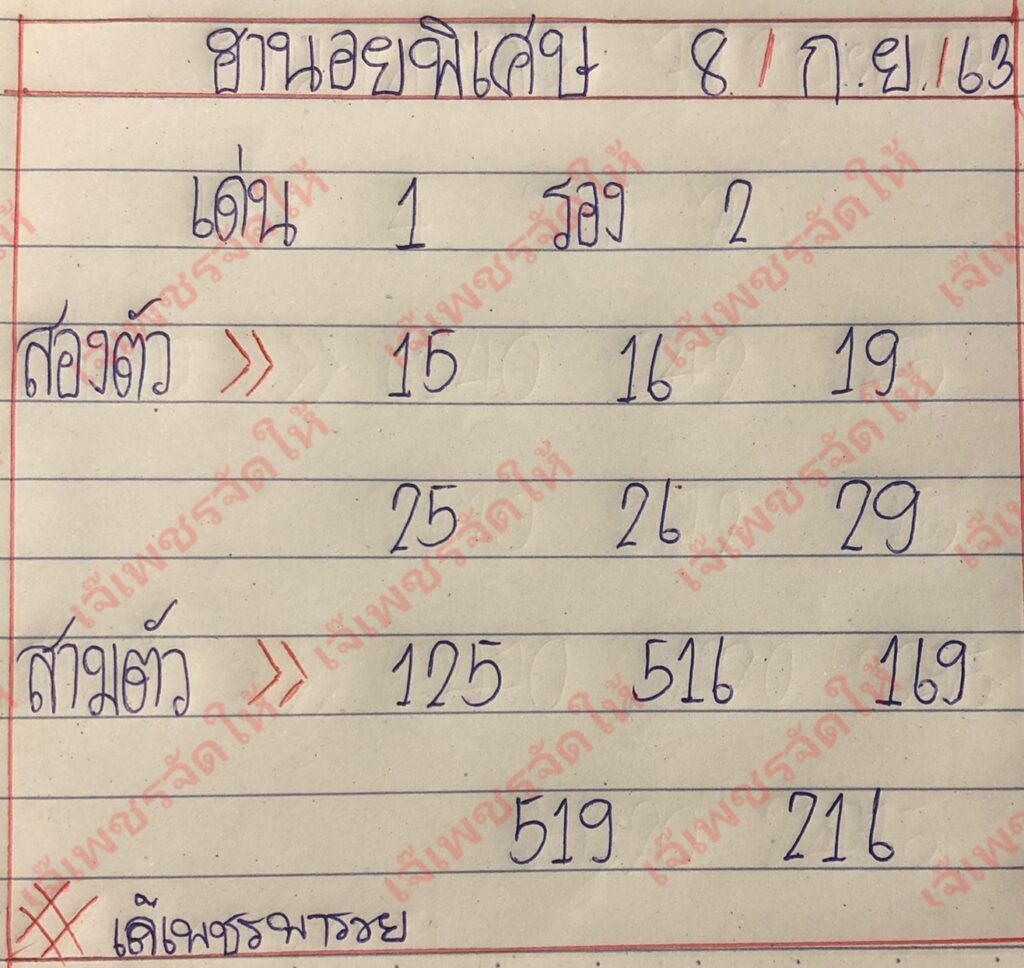 ฮานอยพิเศษ 8 / ก.ย. / 63
เด่น 1 รอง 2
สองตัว >> 15 16 19
25 26 29
สามตัว >> 125 516 169
519 216
เจ๊เพชรพารวย
เจ๊เพชรจัดให้